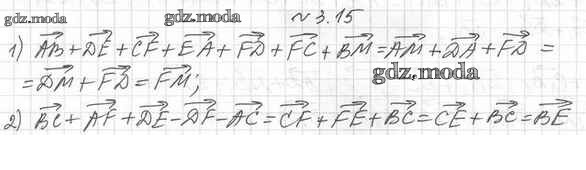 gdz.moda gdz.moda № 3.15
1) AB⃗ + DE⃗ + CF⃗ + EA⃗ + FD⃗ + FC⃗ + BM⃗ = AM⃗ + DA⃗ + FD⃗ =
= DM⃗ + FD⃗ = FM⃗;
gdz.moda
2) BC⃗ + AF⃗ + DE⃗ - DF⃗ - AC⃗ = CF⃗ + FE⃗ + BC⃗ = CE⃗ + BC⃗ = BE⃗